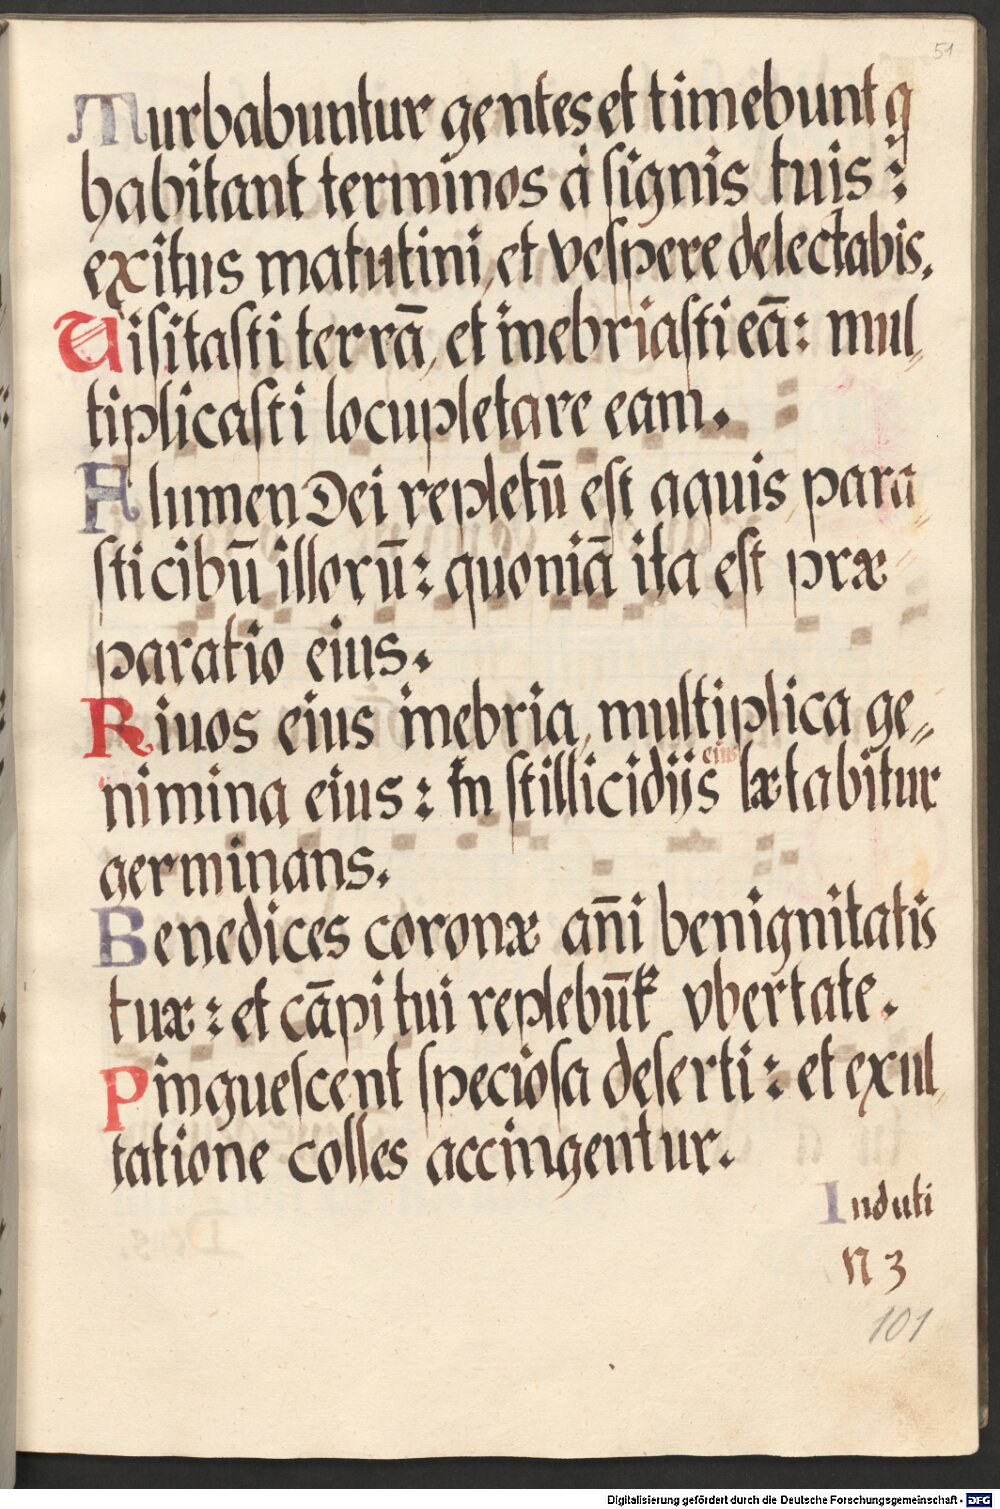 51
Turbabuntur gentes et timebunt q
habitant terminos à signis tuis:
exitus matutini, et vespere delectabis.
Uisitasti terrā, et inebriasti eā: mul„
tiplicasti locupletare eam.
Flumen Dei repletū est aquis, para„
sti cibū illorū: quoniā ita est præ„
paratio eius.
Riuos eius inebria, multiplica ge„
nimina eius: In stillicidijs eius lætabitur
germinans.
Benedices coronæ añi benignitatis
tuæ: et cāpi tui replebūt vbertate.
Pinguescent speciosa deserti: et exul„
tatione colles accingentur.
Induti
N 3
101
Digitalisierung gefördert durch die Deutsche Forschungsgemeinschaft - DFG